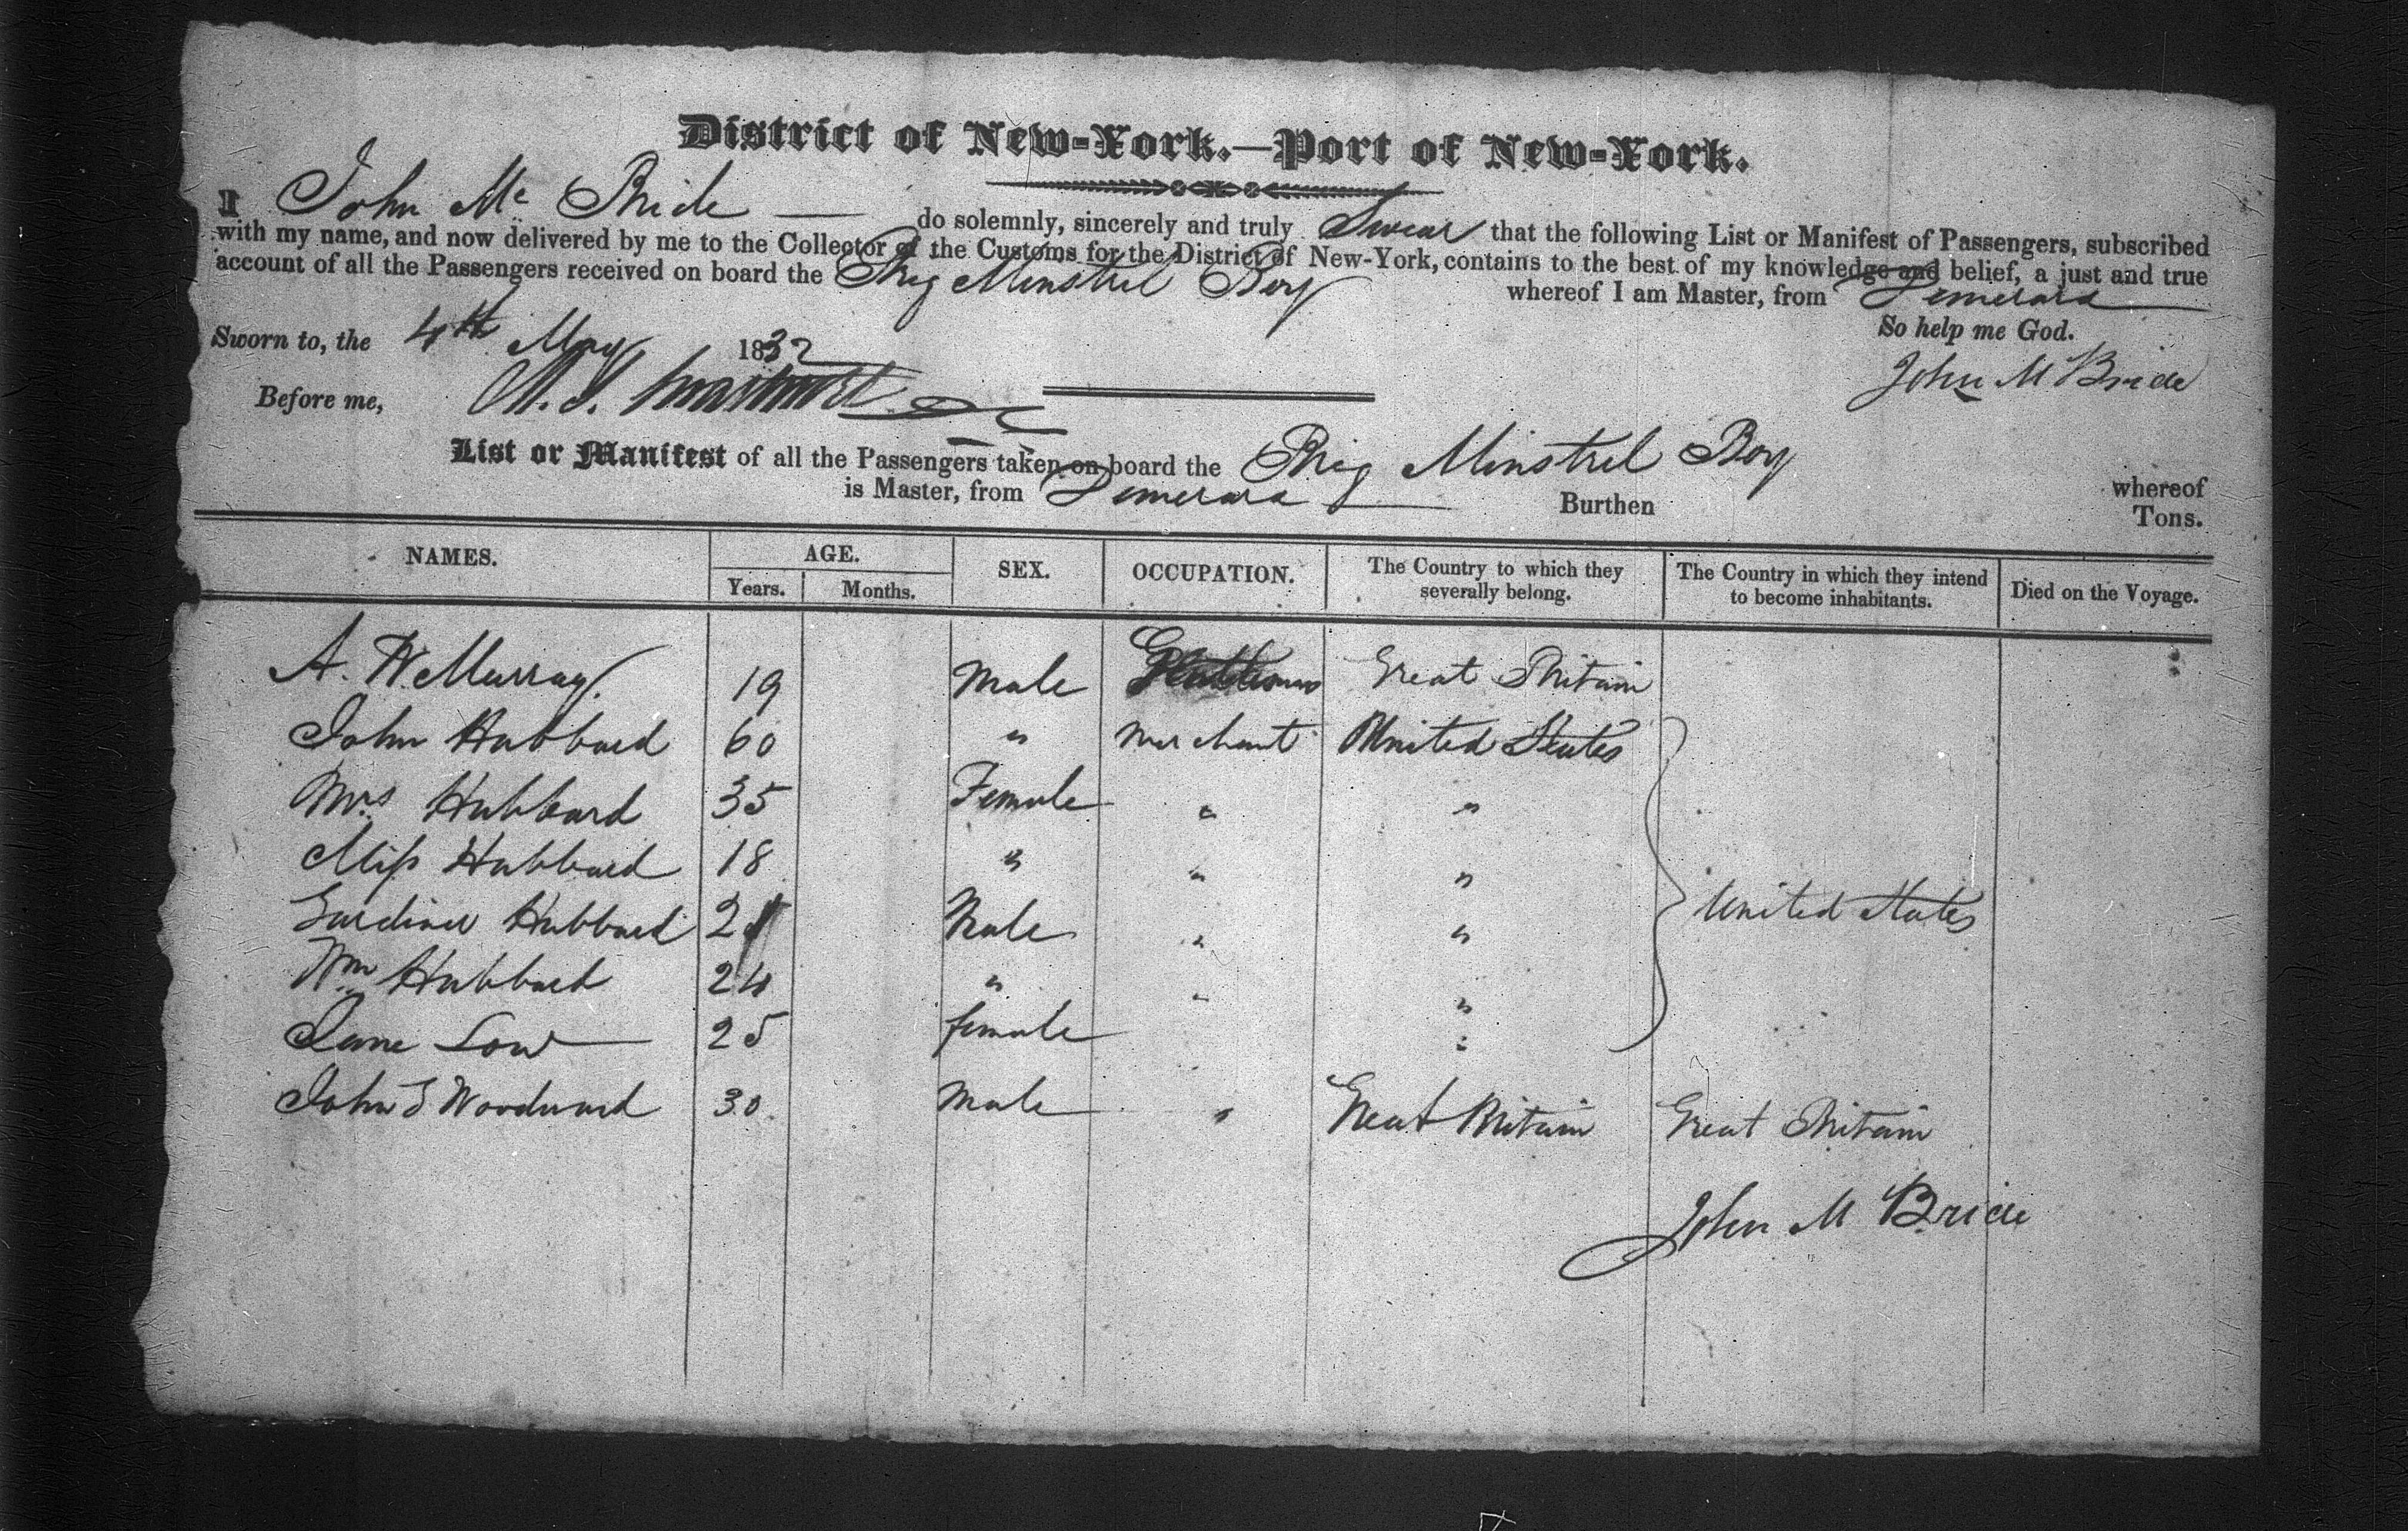 District of New-York.—Port of New-York.
I John Mc Bride — do solemnly, sincerely and truly Swear that the following List or Manifest of Passengers, subscribed
with my name, and now delivered by me to the Collector of the Customs for the District of New-York, contains to the best of my knowledge and belief, a just and true
account of all the Passengers received on board the Brig Minstrel Boy whereof I am Master, from Demerara
So help me God.
Sworn to, the 4th May 1832
John M Bride
Before me,
List or Manifest of all the Passengers taken on board the Brig Minstrel Boy whereof
is Master, from Demerara Burthen Tons.
NAMES. AGE. SEX. OCCUPATION. The Country to which they severally belong. The Country in which they intend to become inhabitants. Died on the Voyage.
Years. Months.
A. W. Murray. 19 Male Great Britain
John Hubbard 60 " Merchant United States
Mrs Hubbard 35 Female " "
Miss Hubbard 18 " " "
Gardiner Hubbard Male " " United States
Wm Hubbard 24 " " "
Jane Low 25 female "
John S Woodward 30 Male " Great Britain Great Britain
John M Bride